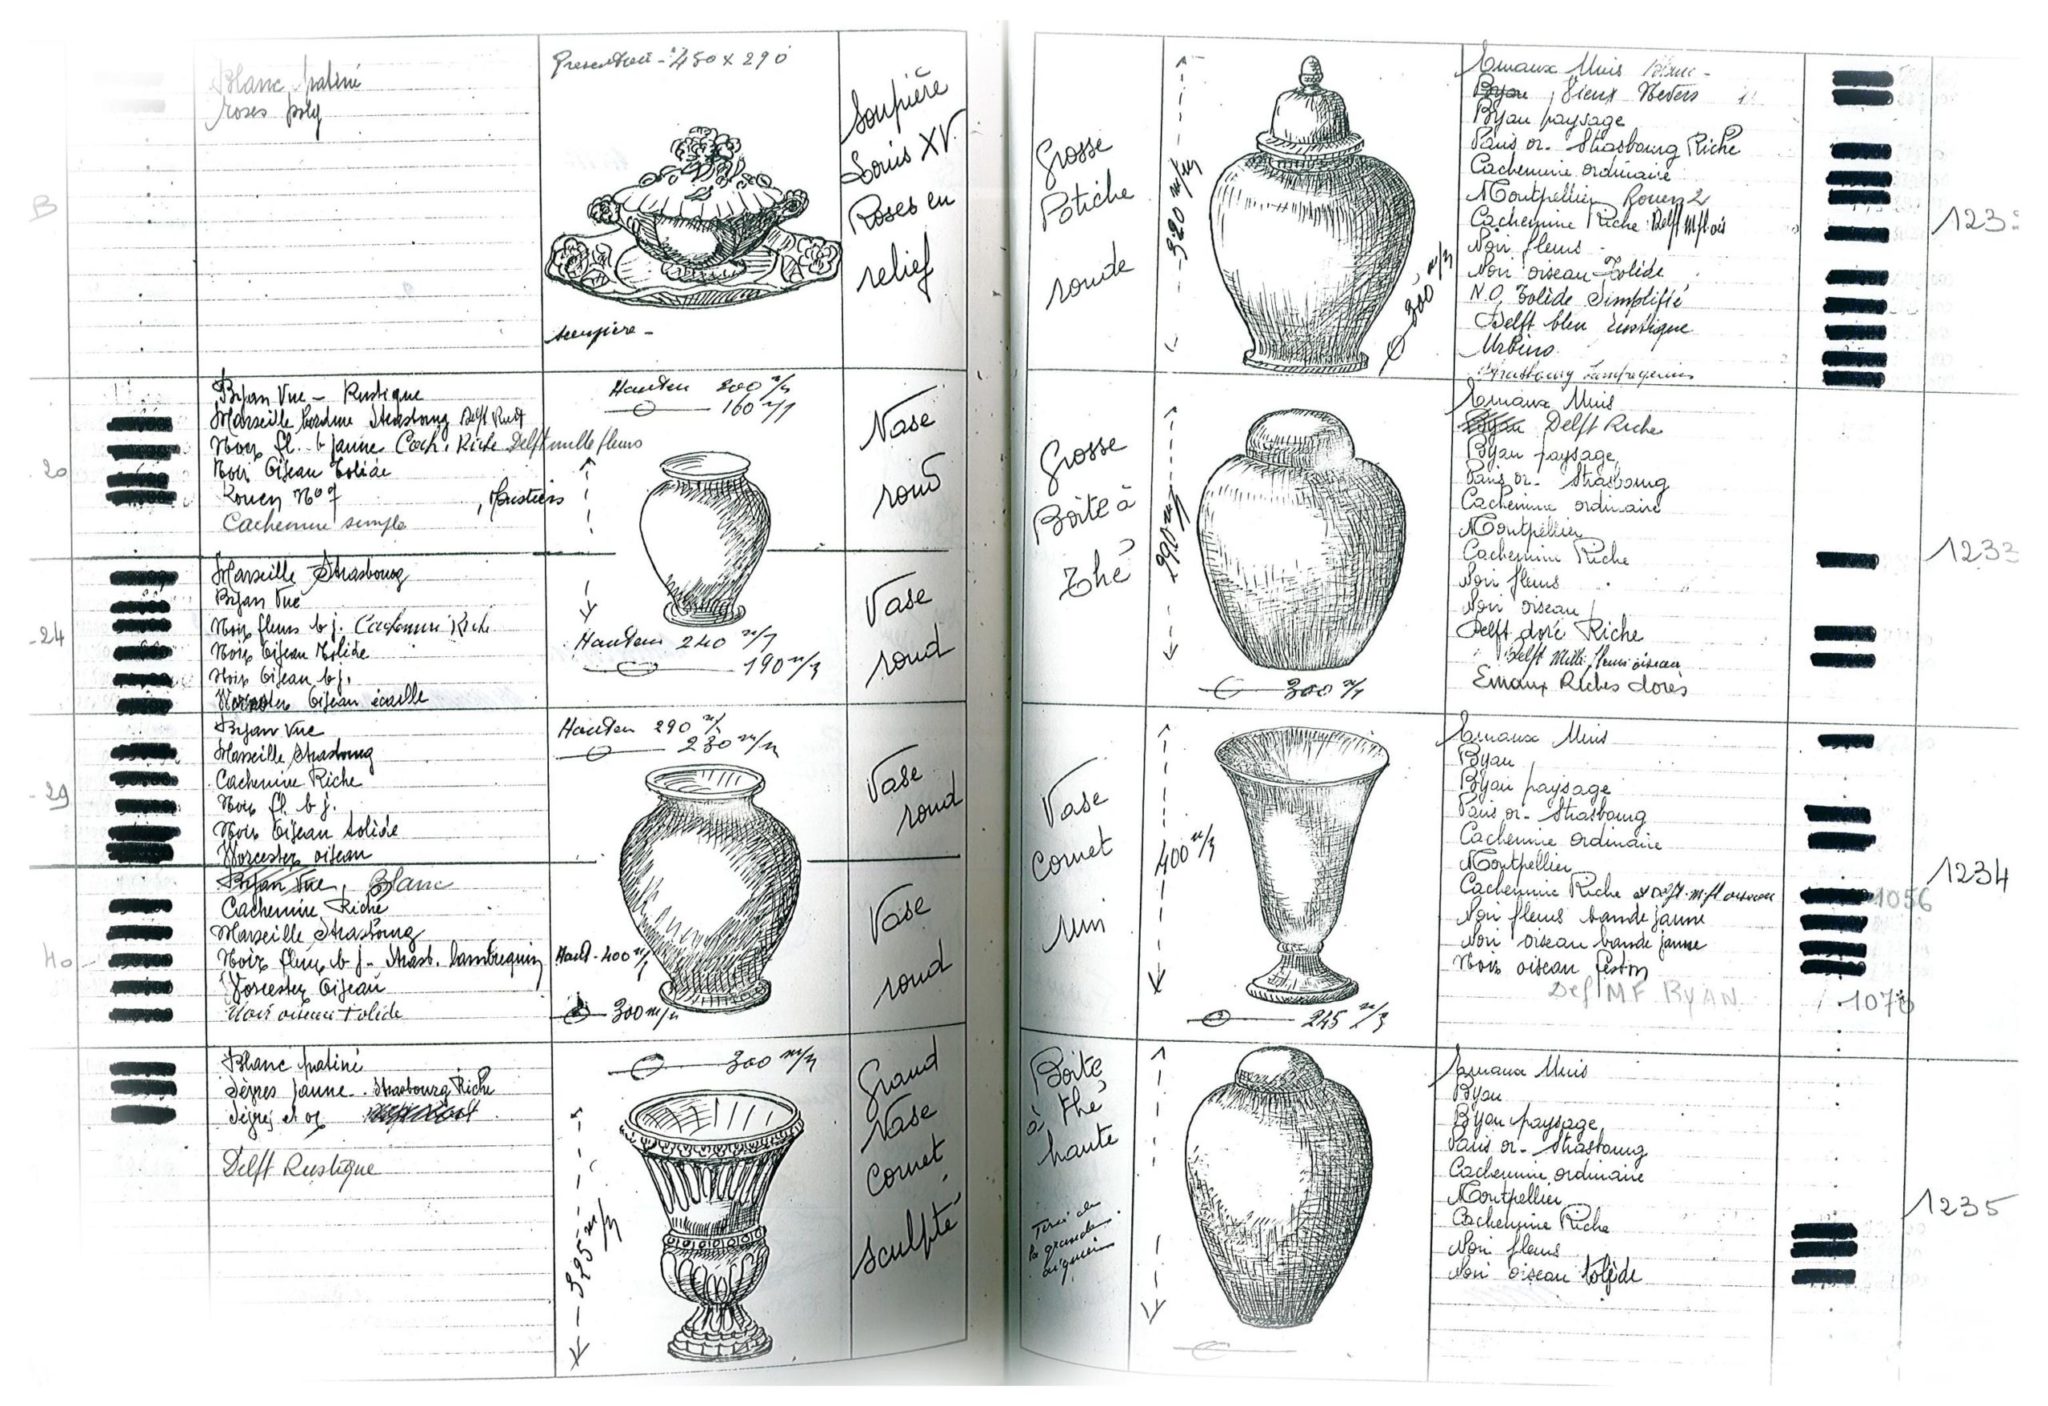 B
Blanc patiné
roses poly
Presentoir - 450 x 290
soupière -
Soupière
Louis XV
Roses en
relief
20
Byan Vue - Rustique
Marseille bordure Strasbourg Delft Rust
Noir fl. b jaune Cach. Riche Delft mille fleurs
Noir Oiseau Tolède
Rouen N° 7, Moustiers
Cachemire simple
Hauteur 200 m/m
160 m/m
Vase
rond
-24
Marseille Strasbourg
Byan Vue
Noir fleurs b j. Cachemire Riche
Noir Oiseau Tolède
Noir Oiseau b j.
Worcester Oiseau écaille
Hauteur 240 m/m
190 m/m
Vase
rond
-29
Byan Vue
Marseille Strasbourg
Cachemire Riche
Noir fl. b j.
Noir Oiseau tolède
Worcester oiseau
Hauteur 290 m/m
230 m/m
Vase
rond
40
Byan Vue, Blanc
Cachemire Riche
Marseille Strasbourg
Noir fleurs b j - Strasb. lambrequin
Worcester Oiseau
Noir oiseau tolède
Haut - 400 m/m
300 m/m
Vase
rond
Blanc patiné
Sèvres jaune - Strasbourg Riche
Sèvres et or
Delft Rustique
300 m/m
395 m/m
Grand
Vase
cornet
sculpté
Grosse
Potiche
ronde
520 m/m
300 m/m
Emaux Unis Blanc -
Byan, Vieux Nevers
Byan paysage
Paris or - Strasbourg Riche
Cachemire ordinaire
Montpellier Rouen 2
Cachemire Riche Delft M fl ois
Noir fleurs
Noir oiseau Tolède
N.O. Tolède Simplifié
Delft bleu rustique
Urbino
Strasbourg Lambrequins
123
Grosse
Boite à
Thé
290 m/m
300 m/m
Emaux Unis
Byan Delft Riche
Byan paysage
Paris or - Strasbourg
Cachemire ordinaire
Montpellier
Cachemire Riche
Noir fleurs
Noir oiseau
Delft doré Riche
Delft Mille fleurs oiseau
Emaux Riches dorés
1233
Vase
cornet
uni
400 m/m
245 m/m
Emaux Unis
Byan
Byan paysage
Paris or - Strasbourg
Cachemire ordinaire
Montpellier
Cachemire Riche et Delft m. fl oiseau
Noir fleurs bande jaune
Noir oiseau bande jaune
Noir oiseau feston
Def MF BYAN
1056
1234
Boite
à thé
haute
la grande
Emaux Unis
Byan
Byan paysage
Paris or - Strasbourg
Cachemire ordinaire
Montpellier
Cachemire Riche
Noir fleurs
Noir oiseau tolède
1235